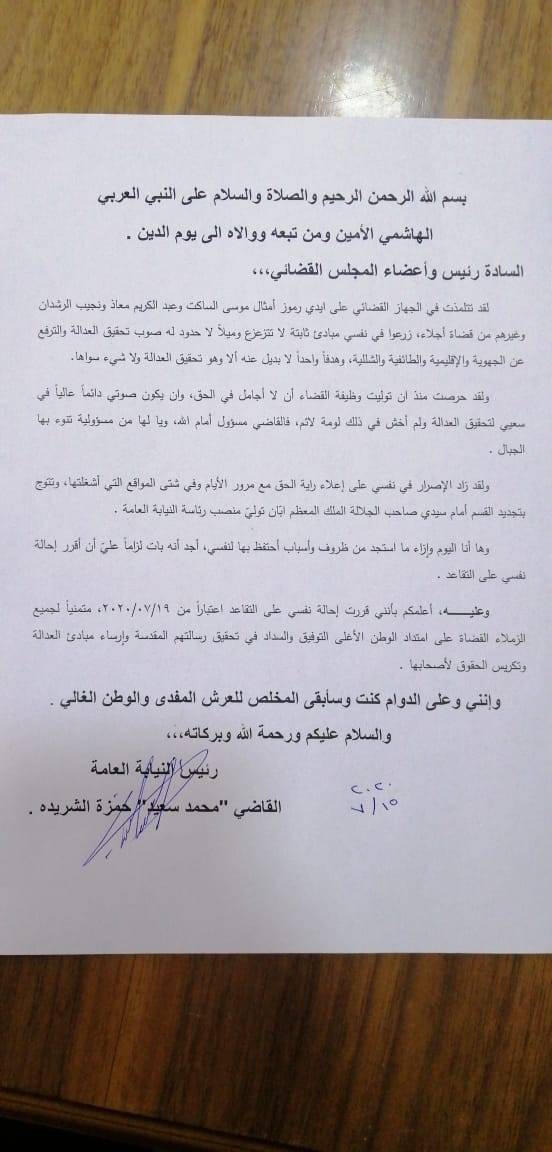 بسم الله الرحمن الرحيم والصلاة والسلام على النبي العربي
الهاشمي الأمين ومن تبعه ووالاه الى يوم الدين .
السادة رئيس وأعضاء المجلس القضائي،،،
لقد تتلمذت في الجهاز القضائي على ايدي رموز أمثال موسى الساكت وعبد الكريم معاذ ونجيب الرشدان
وغيرهم من قضاة أجلاء، زرعوا في نفسي مبادئ ثابتة لا تتزعزع وميلاً لا حدود له صوب تحقيق العدالة والترفع
عن الجهوية والإقليمية والطائفية والشللية، وهدفاً واحداً لا بديل عنه ألا وهو تحقيق العدالة ولا شيء سواها.
ولقد حرصت منذ ان توليت وظيفة القضاء أن لا أجامل في الحق، وان يكون صوتي دائماً عالياً في
سعيي لتحقيق العدالة ولم أخش في ذلك لومة لائم، فالقاضي مسؤول أمام الله، ويا لها من مسؤولية تنوء بها
الجبال .
ولقد زاد الإصرار في نفسي على إعلاء راية الحق مع مرور الأيام وفي شتى المواقع التي أشغلتها، وتتوج
بتجديد القسم أمام سيدي صاحب الجلالة الملك المعظم ابّان توليّ منصب رئاسة النيابة العامة .
وها أنا اليوم وإزاء ما استجد من ظروف وأسباب أحتفظ بها لنفسي، أجد أنه بات لزاماً عليّ أن أقرر إحالة
نفسي على التقاعد .
وعليـــــه، أعلمكم بأنني قررت إحالة نفسي على التقاعد اعتباراً من ٢٠٢٠/٠٧/١٩، متمنياً لجميع
الزملاء القضاة على امتداد الوطن الأغلى التوفيق والسداد في تحقيق رسالتهم المقدسة وإرساء مبادئ العدالة
وتكريس الحقوق لأصحابها .
وإنني وعلى الدوام كنت وسأبقى المخلص للعرش المفدى والوطن الغالي .
والسلام عليكم ورحمة الله وبركاته،،،
رئيس النيابة العامة
القاضي "محمد سعيد" حمزة الشريده .
٢٠٢٠
٧/١٥